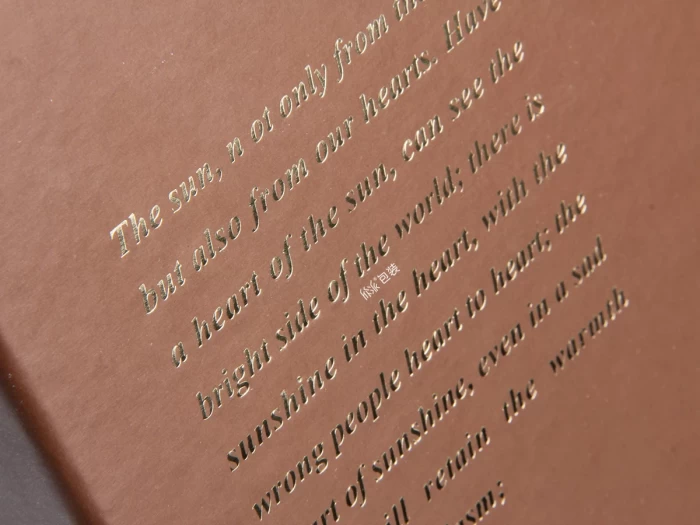 The sun, n ot only from the
but also from our hearts. Have
a heart of the sun, can see the
bright side of the world; there is
sunshine in the heart, with the
wrong people heart to heart; the
of sunshine, even in a sad
retain the warmth
欣派包装